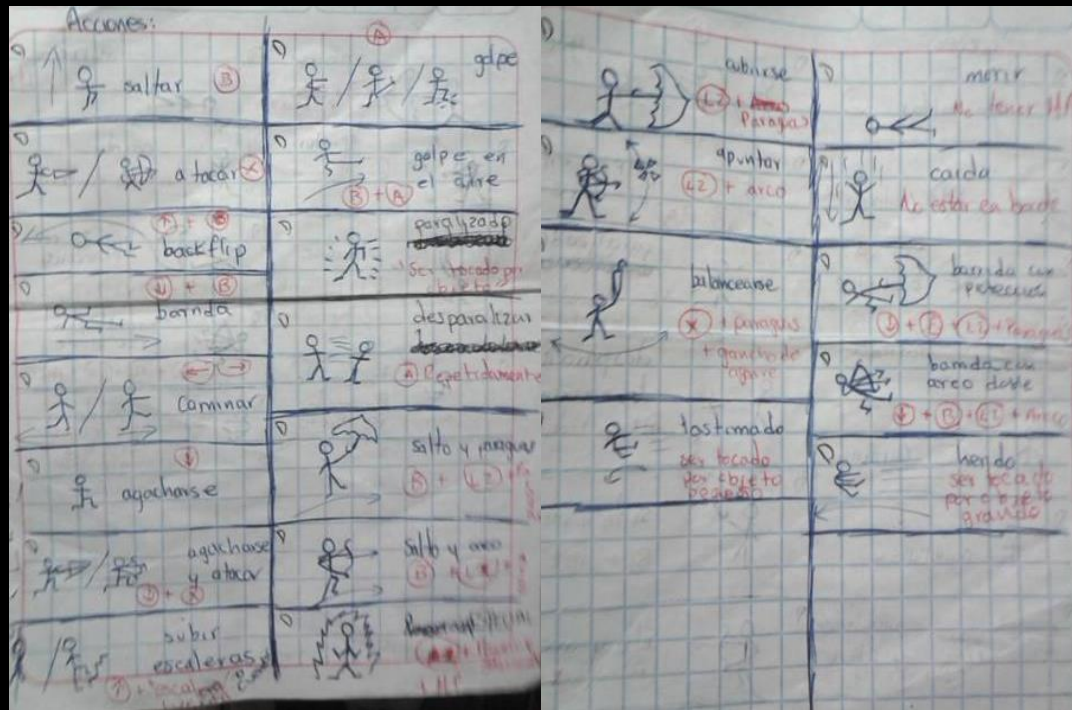 Acciones:
saltar B
atacar X
↑ + B
backflip
↓ + B
barrida
← →
caminar
↓
agacharse
agacharse
y atacar
subir
escaleras
A
golpe
golpe en
el aire
B + A
paralizado
ser tocado por
objeto
desparalizar
A Repetidamente
salto y paraguas
B + L2 +
salto y arco
B +
+ HP
cubrirse
L2 +
Paraguas
apuntar
L2 + arco
balancearse
X + paraguas
+ gancho de
agarre
lastimado
ser tocado
por objeto
pequeño
morir
No tener HP
caida
No estar en borde
barrida con
barrida con
arco desde
↓ + B + L2 + Arco
herido
ser tocado
por objeto
grande